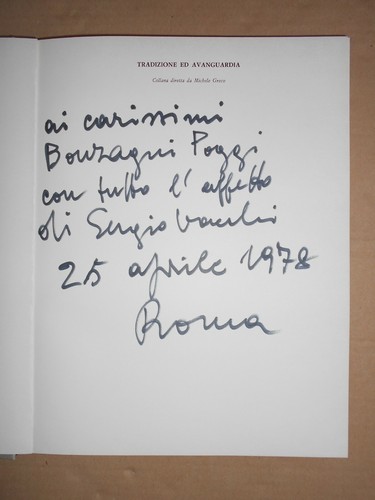 TRADIZIONE ED AVANGUARDIA
Collana diretta da Michele Greco
ai carissimi
Bonzagni Poggi
con tutto l'affetto
di Sergio Vacchi
25 aprile 1978
Roma